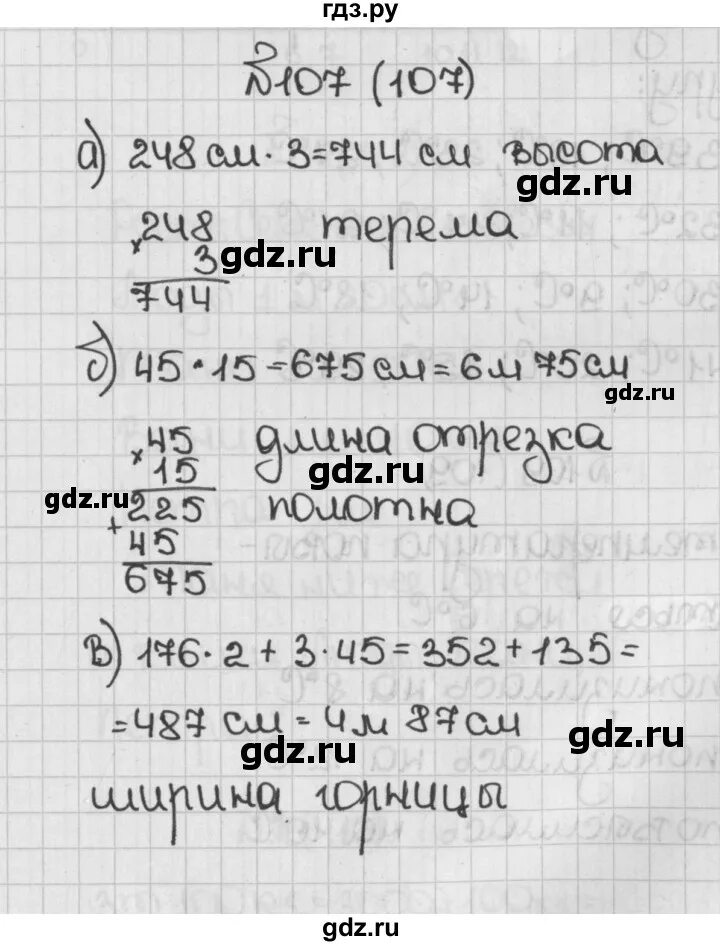 гдз.ру
№107 (107)
а) 248 см · 3 = 744 см высота
× 248 терема
3 gdz.ru
744
б) 45 · 15 = 675 см = 6 м 75 см
gdz.ru
× 45 длина отрезка
15 gdz.ru
gdz.ru
+ 225 полотна
45
675
в) 176 · 2 + 3 · 45 = 352 + 135 =
= 487 см = 4 м 87 см
gdz.ru gdz.ru
ширина горницы
gdz.ru
gdz.ru